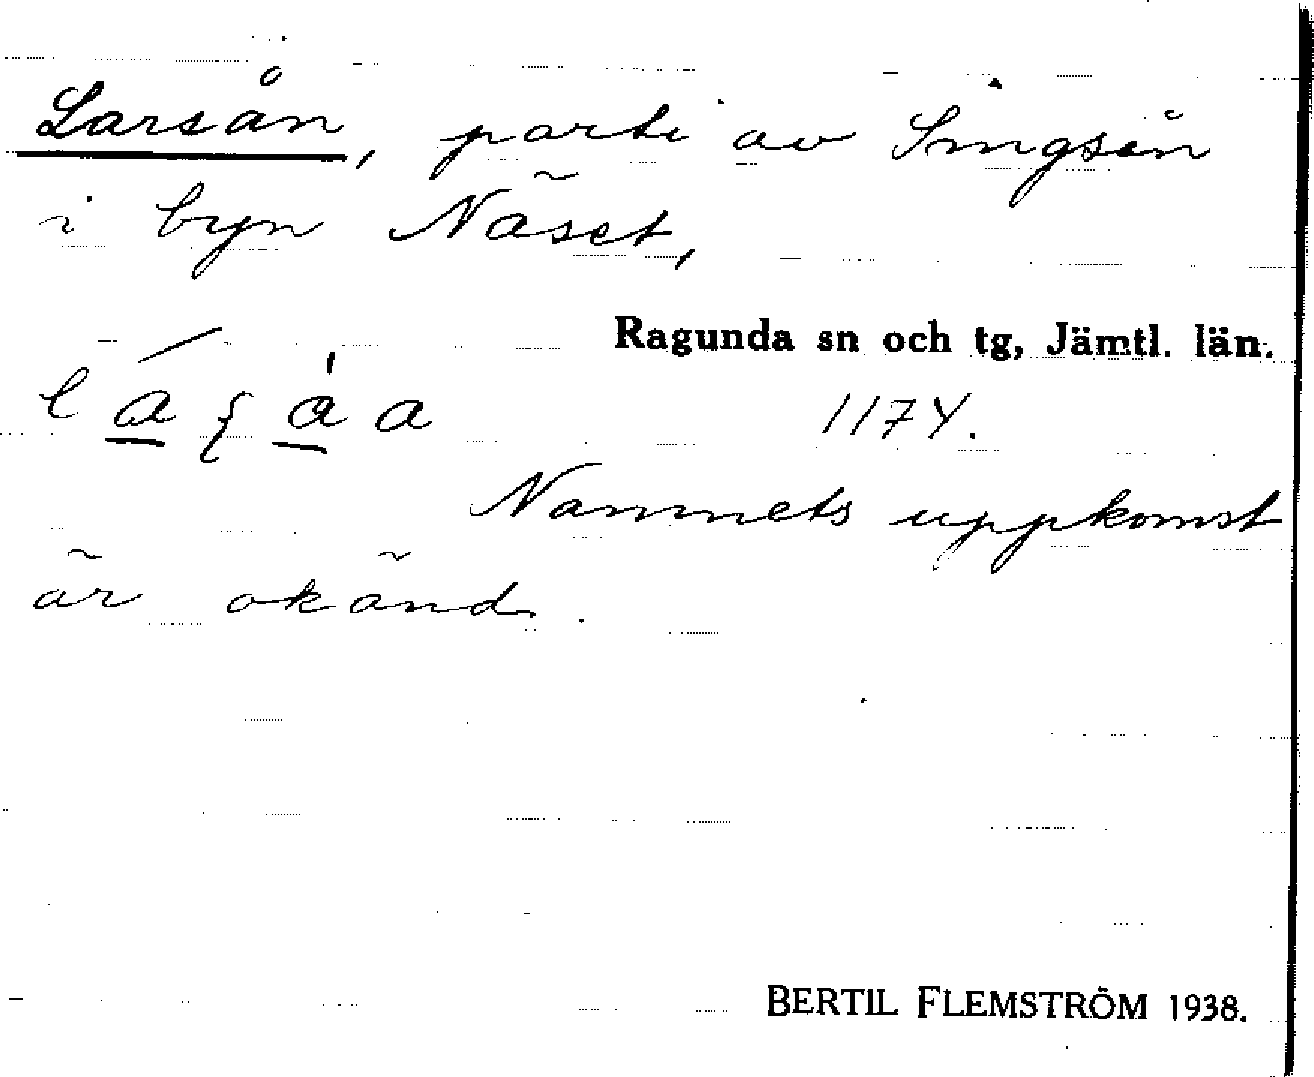 Larsån, parti av Singsån
i byn Näset,
Ragunda sn och tg, Jämtl. län.
1174.
Namnets uppkomst
är okänd.
BERTIL FLEMSTRÖM 1938.